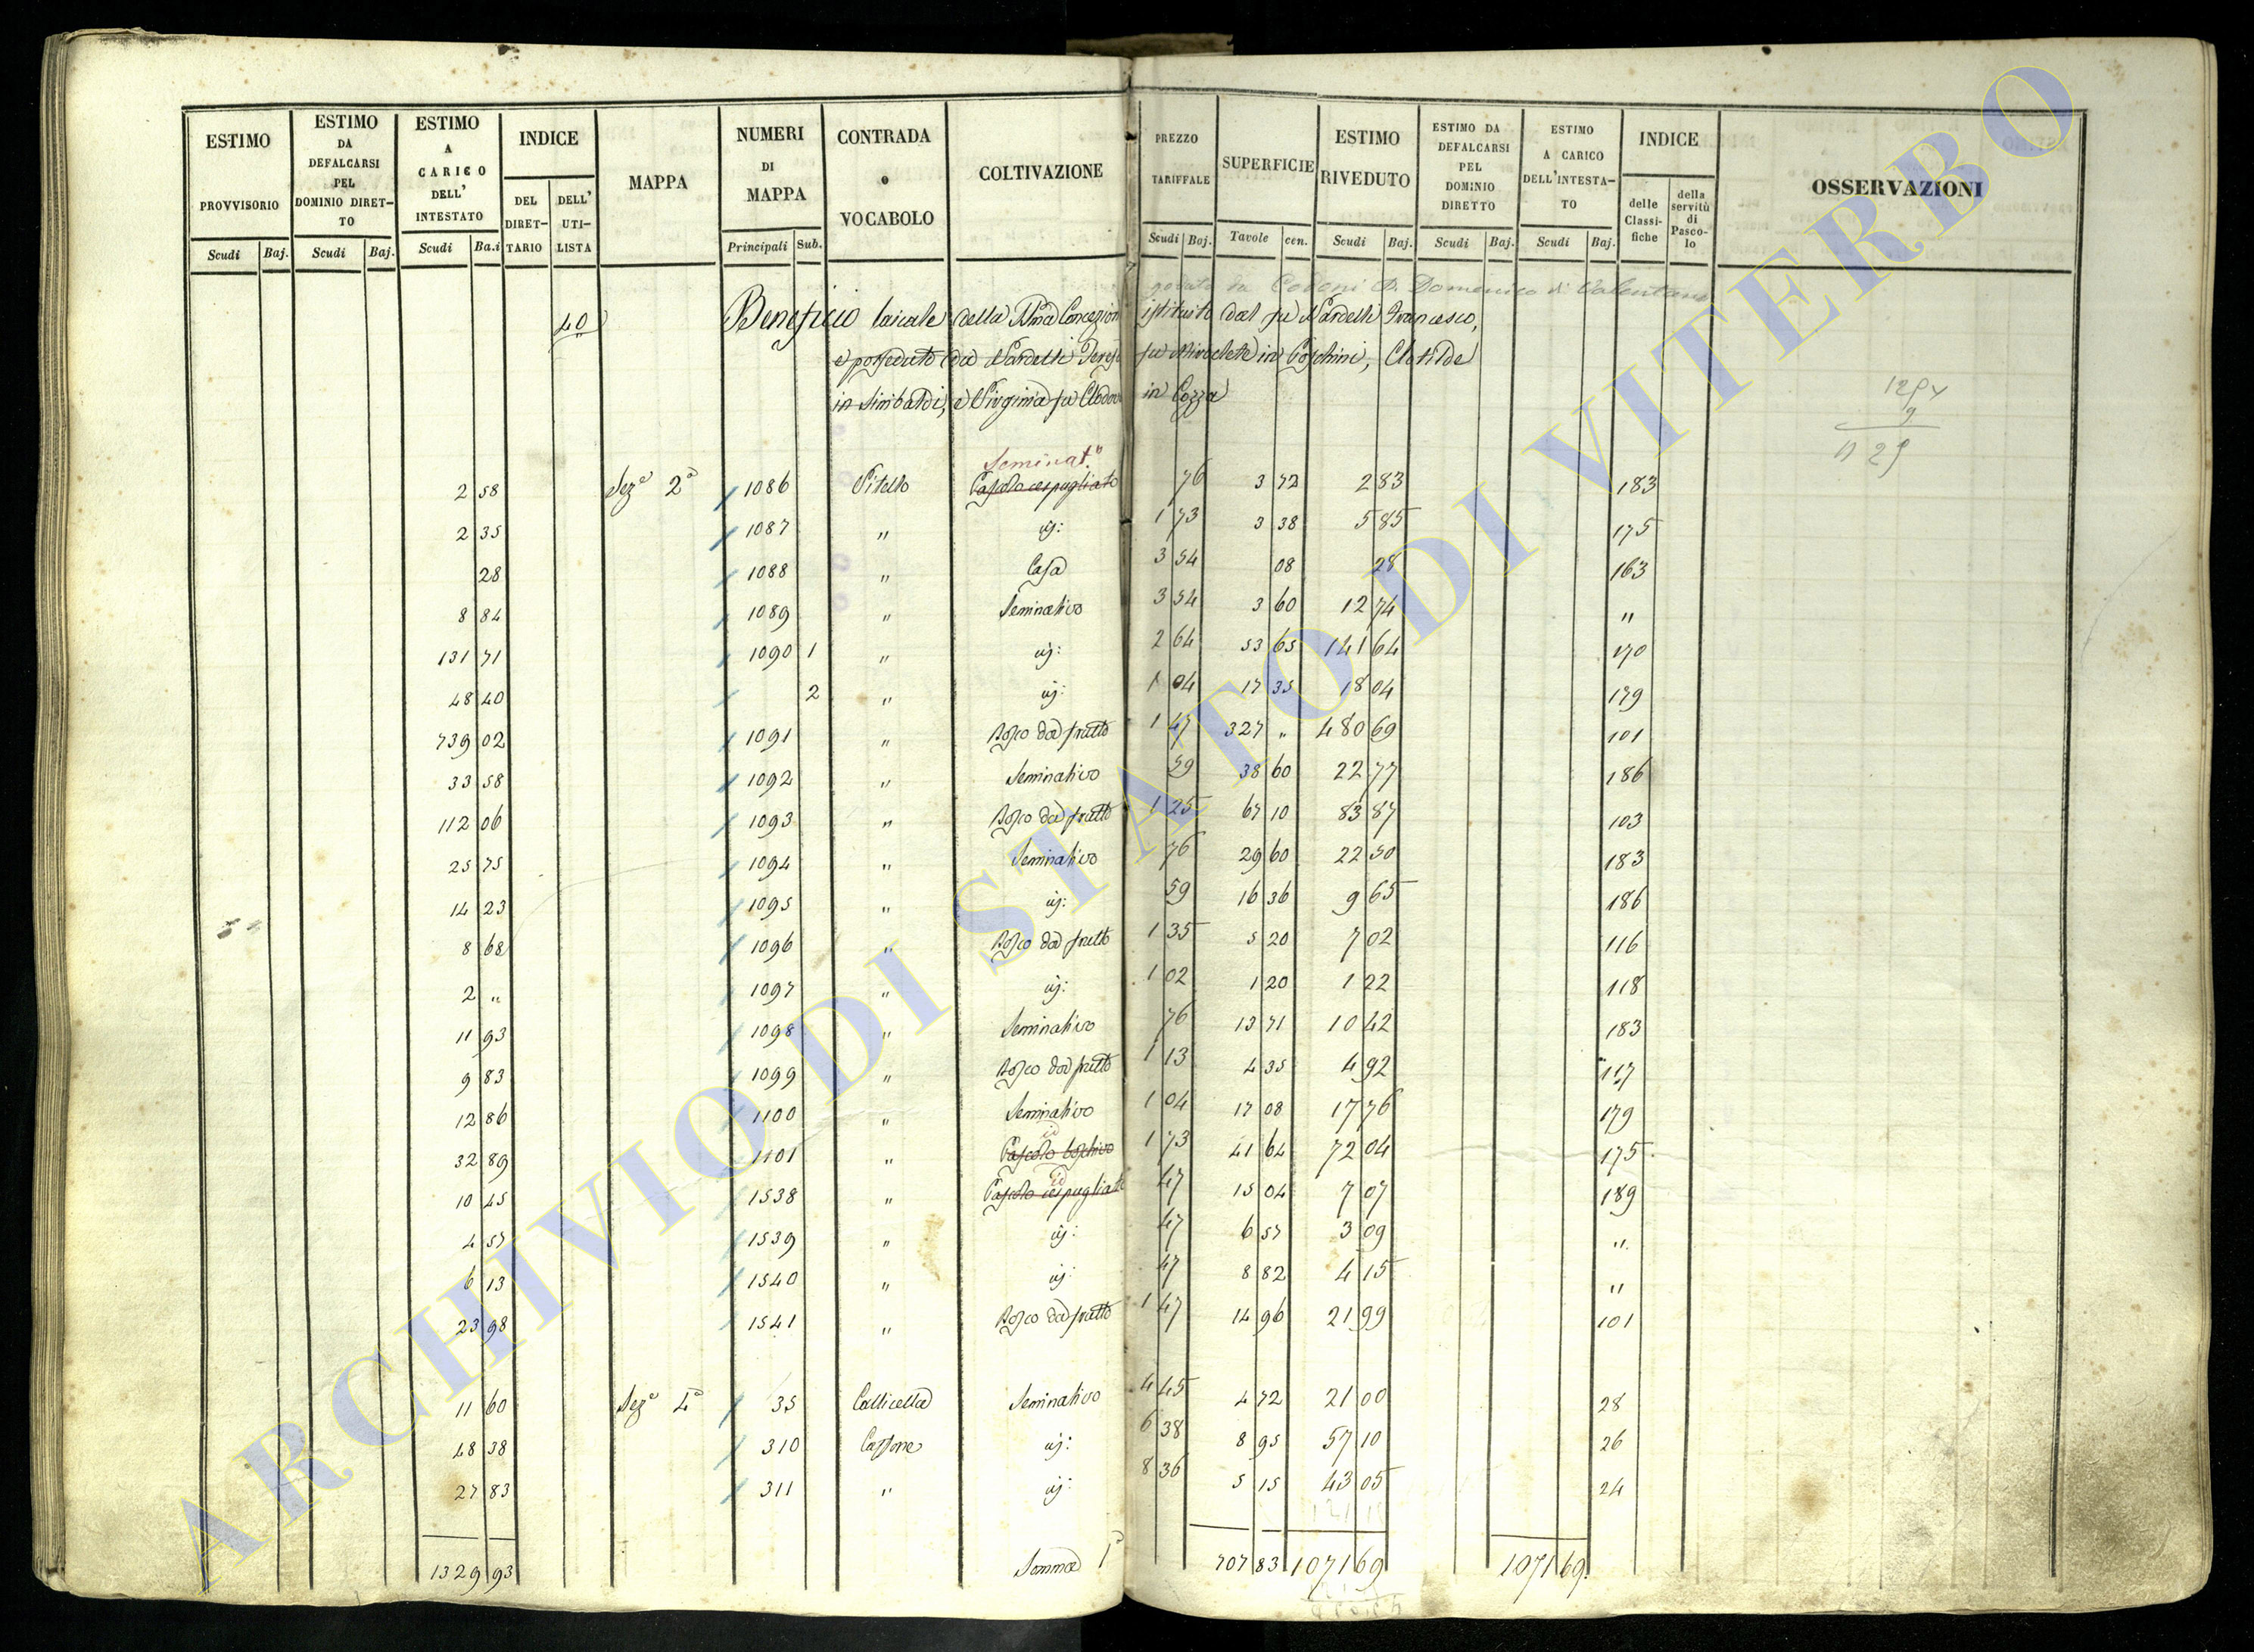 ESTIMO PROVVISORIO Scudi Baj.
ESTIMO DA DEFALCARSI PEL DOMINIO DIRET–TO Scudi Baj.
ESTIMO A CARICO DELL' INTESTATO Scudi Ba.i
INDICE DEL DIRET–TARIO DELL' UTI–LISTA
MAPPA
NUMERI DI MAPPA Principali Sub.
CONTRADA o VOCABOLO
COLTIVAZIONE
PREZZO TARIFFALE Scudi Baj.
SUPERFICIE Tavole cen.
ESTIMO RIVEDUTO Scudi Baj.
ESTIMO DA DEFALCARSI PEL DOMINIO DIRETTO Scudi Baj.
ESTIMO A CARICO DELL'INTESTA–TO Scudi Baj.
INDICE delle Classi–fiche della servitù di Pasco–lo
OSSERVAZIONI
goduto da Domenico di Valentano
40 Beneficio laicale della Concezion istituito dal fu Nardelli Francesco,
e posseduto da Nardelli Teresa fu in Coschini, Clotilde
in Sinibaldi, e Virginia fu in Cozza
Seminat.o
2 58 Sez.e 2a 1086 Vitello Pascolo cespugliato 76 3 72 2 83 183
2 35 1087 " id: 1 73 3 38 5 85 175
28 1088 " Casa 3 54 08 28 163
8 84 1089 " Seminativo 3 54 3 60 12 74 "
131 71 1090 1 " id: 2 64 53 65 141 64 170
48 40 2 " id: 1 04 17 35 18 04 179
739 02 1091 " Bosco da frutto 1 47 327 " 480 69 101
33 58 1092 " Seminativo 59 38 60 22 77 186
112 06 1093 " Bosco da frutto 1 25 67 10 83 87 103
25 75 1094 " Seminativo 76 29 60 22 50 183
14 23 1095 " id: 59 16 36 9 65 186
8 68 1096 " Bosco da frutto 1 35 5 20 7 02 116
2 " 1097 " id: 1 02 1 20 1 22 118
11 93 1098 " Seminativo 76 13 71 10 42 183
9 83 1099 " Bosco da frutto 1 13 4 35 4 92 117
12 86 1100 " Seminativo 1 04 17 08 17 76 179
id
32 89 1101 " Pascolo boschivo 1 73 41 64 72 04 175
id
10 45 1538 " Pascolo cespugliato 47 15 04 7 07 189
4 57 1539 " id: 47 6 57 3 09 "
6 13 1540 " id: 47 8 82 4 15 "
23 98 1541 " Bosco da frutto 1 47 14 96 21 99 101
11 60 Sez.e 4a 35 Callicella Seminativo 4 45 4 72 21 00 28
48 38 310 Cassone id: 6 38 8 95 57 10 26
27 83 311 " id: 8 36 5 15 43 05 24
1329 93 Somma 707 83 1071 69 1071 69
ARCHIVIO DI STATO DI VITERBO